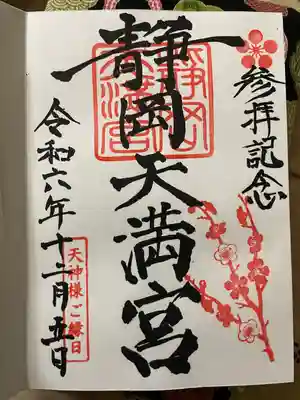 参拝記念
靜岡天満宮
令和六年十二月五日
天神様ご縁日